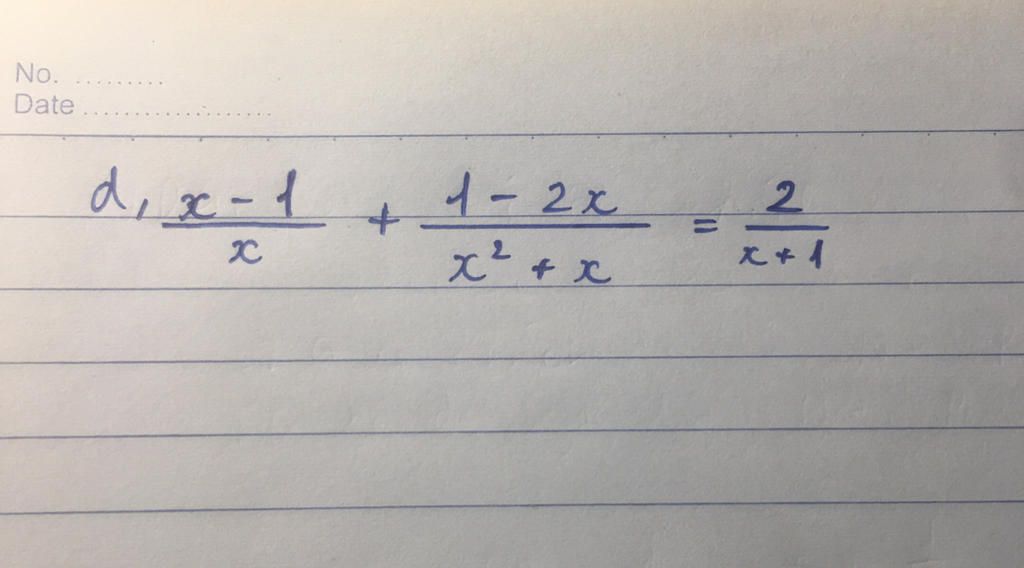 No. .........
Date ...................
d, \frac{x-1}{x} + \frac{1-2x}{x^2+x} = \frac{2}{x+1}